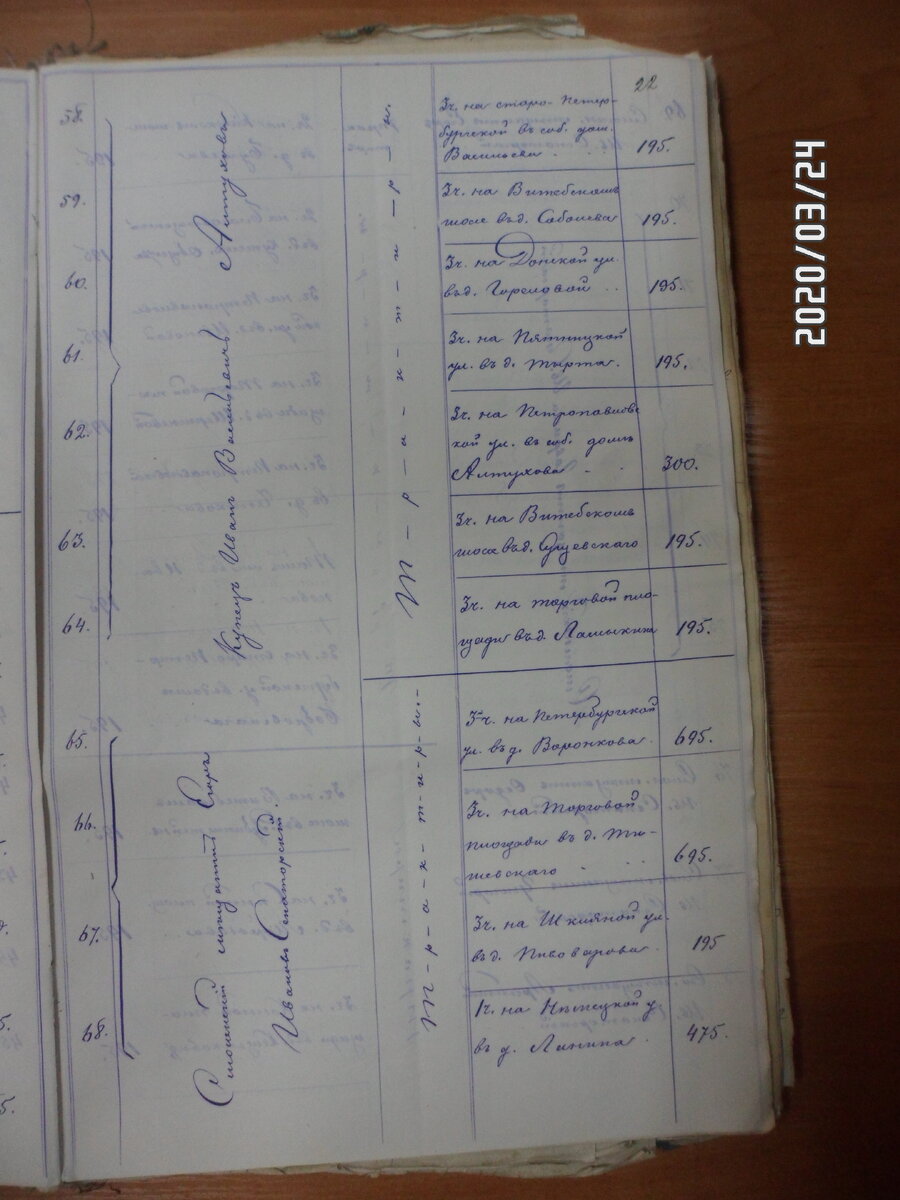 22
58.
Купецъ Иванъ Васильевичъ Алтуховъ
Т-р-а-к-т-и-р-ы.
3ч. на старо-Петер-
бургской въ соб. дом.
Васильева
195.
59.
3ч. на Витебскомъ
шоссе въ д. Соболева
195.
60.
3ч. на Донской ул.
въ д. Гореловой
195.
61.
3ч. на Пятницкой
ул. въ д.
195.
62.
3ч. на Петропавловс
кой ул. въ соб. домѣ
Алтухова
300.
63.
3ч. на Витебскомъ
шоссе въ д.
195.
64.
3ч. на торговой пло-
щади въ д.
195.
65.
Смоленскій мѣщанинъ
Ивановъ Сенаторскій.
Т-р-а-к-т-и-р-ы.
3ч. на Петербургской
ул. въ д. Воронкова
695.
66.
3ч. на Торговой
площади въ д. Ти-
шевскаго
695.
67.
3ч. на ул.
въ д. Пивоварова
195
68.
1ч. на Нѣмецкой у.
въ д. Ланина
475.
2020/03/24